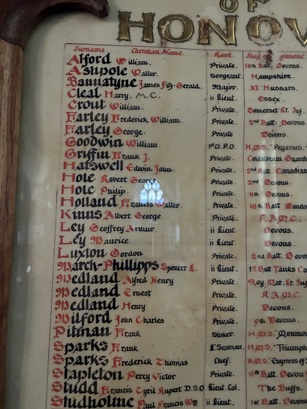 OF
HONOU
Surname Christian Name. Rank. Regiment
Alford William. Private. Devons.
Aspole Walter. Sergeant. Hampshire
Bannatyne James Fitz-Gerald. Major XI Hussars.
Cleal Harry. M.C. ii Lieut. Essex
Crout William. Private. Somerset Lt. Inf.
Farley Frederick William. Private. 2nd Batt. Devons.
Farley George. Private. Devons.
Goodwin William 1st G.P.O. H.M.S. "Pegasus."
Griffin Frank J. Private. Coldstream Guards
Hatswell Edwin John Private. Canadian
Hole Robert George Private. Devons.
Hole Philip Private. Devons.
Holland Francis Walter. Private. Devons.
Kinns Albert George Private. R.A.M.C.
Ley Geoffrey Arthur. ii Lieut. Devons.
Ley Maurice ii Lieut. Devons.
Luxton Gordon Private. 2nd Batt. Devons
March-Phillipps Spencer L. ii Lieut. 1st Batt. Tanks
Medland Alfred Henry Private. Roy. Mar. Lt. Inf.
Medland Ernest Private. R.A.M.C.
Medland Henry Private. Devons.
Milford John Charles Private. Devons.
Pitman Frank Stoker. H.M.S.
Sparks Frank. H.M.S. "Triumph
Sparks Frederick Thomas Chef. H.M.S. "Empress of
Stapleton Percy Victor Private. Batt. Devons
Studd Francis Cyril Rupert D.S.O Lieut. Col. The Buffs.
Studholme Paul Francis ii Lieut.